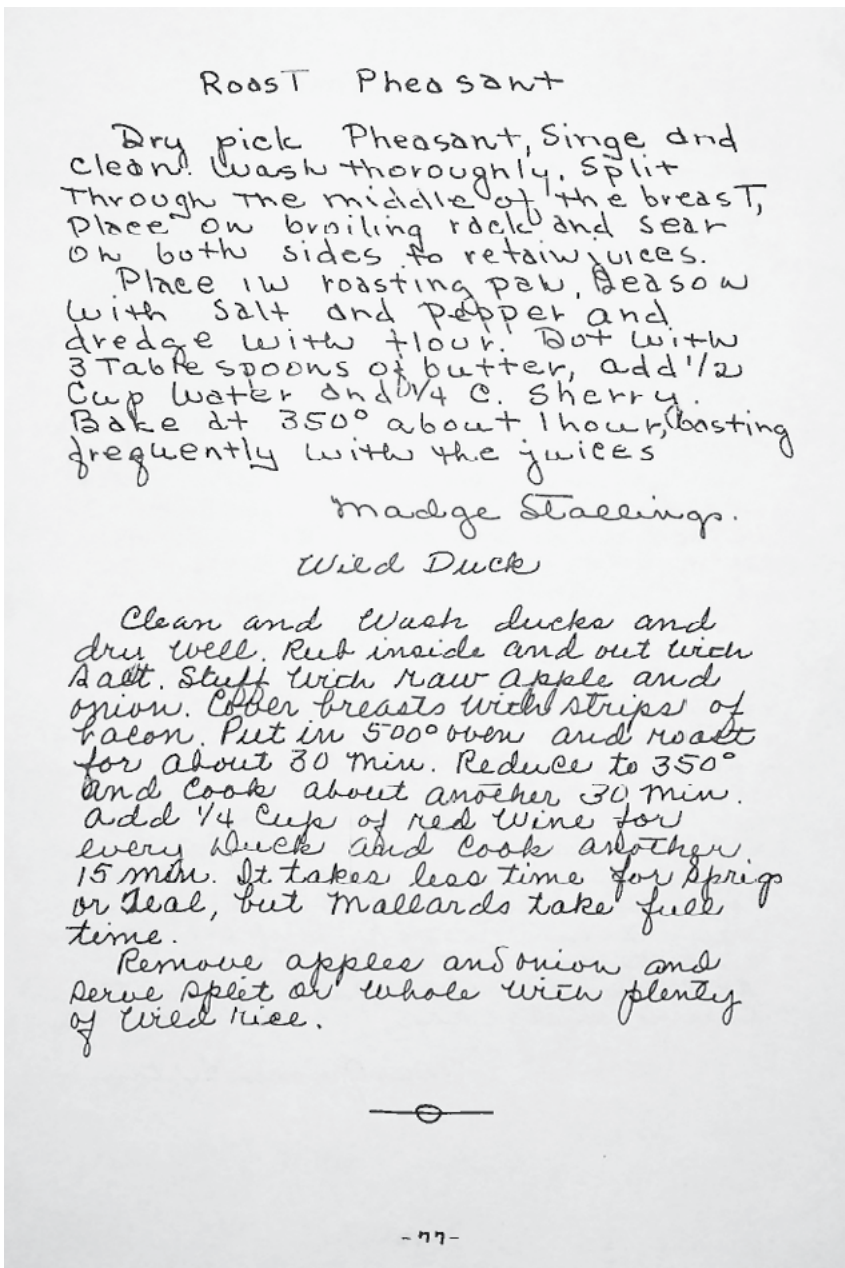 Roast Pheasant
Dry pick Pheasant, Singe and
clean. Wash thoroughly. Split
Through The middle of the breast,
Place on broiling rack and sear
on both sides to retain juices.
Place in roasting pan, Season
with Salt and Pepper and
dredge with flour. Dot with
3 Tablespoons of butter, add 1/2
Cup Water and 1/4 C. Sherry.
Bake at 350° about 1 hour, basting
frequently with the juices
Madge Stallings.
Wild Duck
Clean and Wash ducks and
dry well. Rub inside and out with
Salt. Stuff with raw apple and
onion. Cover breasts with strips of
bacon. Put in 500° oven and roast
for about 30 min. Reduce to 350°
and cook about another 30 min.
add 1/4 Cup of red wine for
every Duck and cook another
15 min. It takes less time for Sprigs
or Teal, but Mallards take full
time.
Remove apples and onion and
serve split or whole with plenty
of wild rice.
-77-